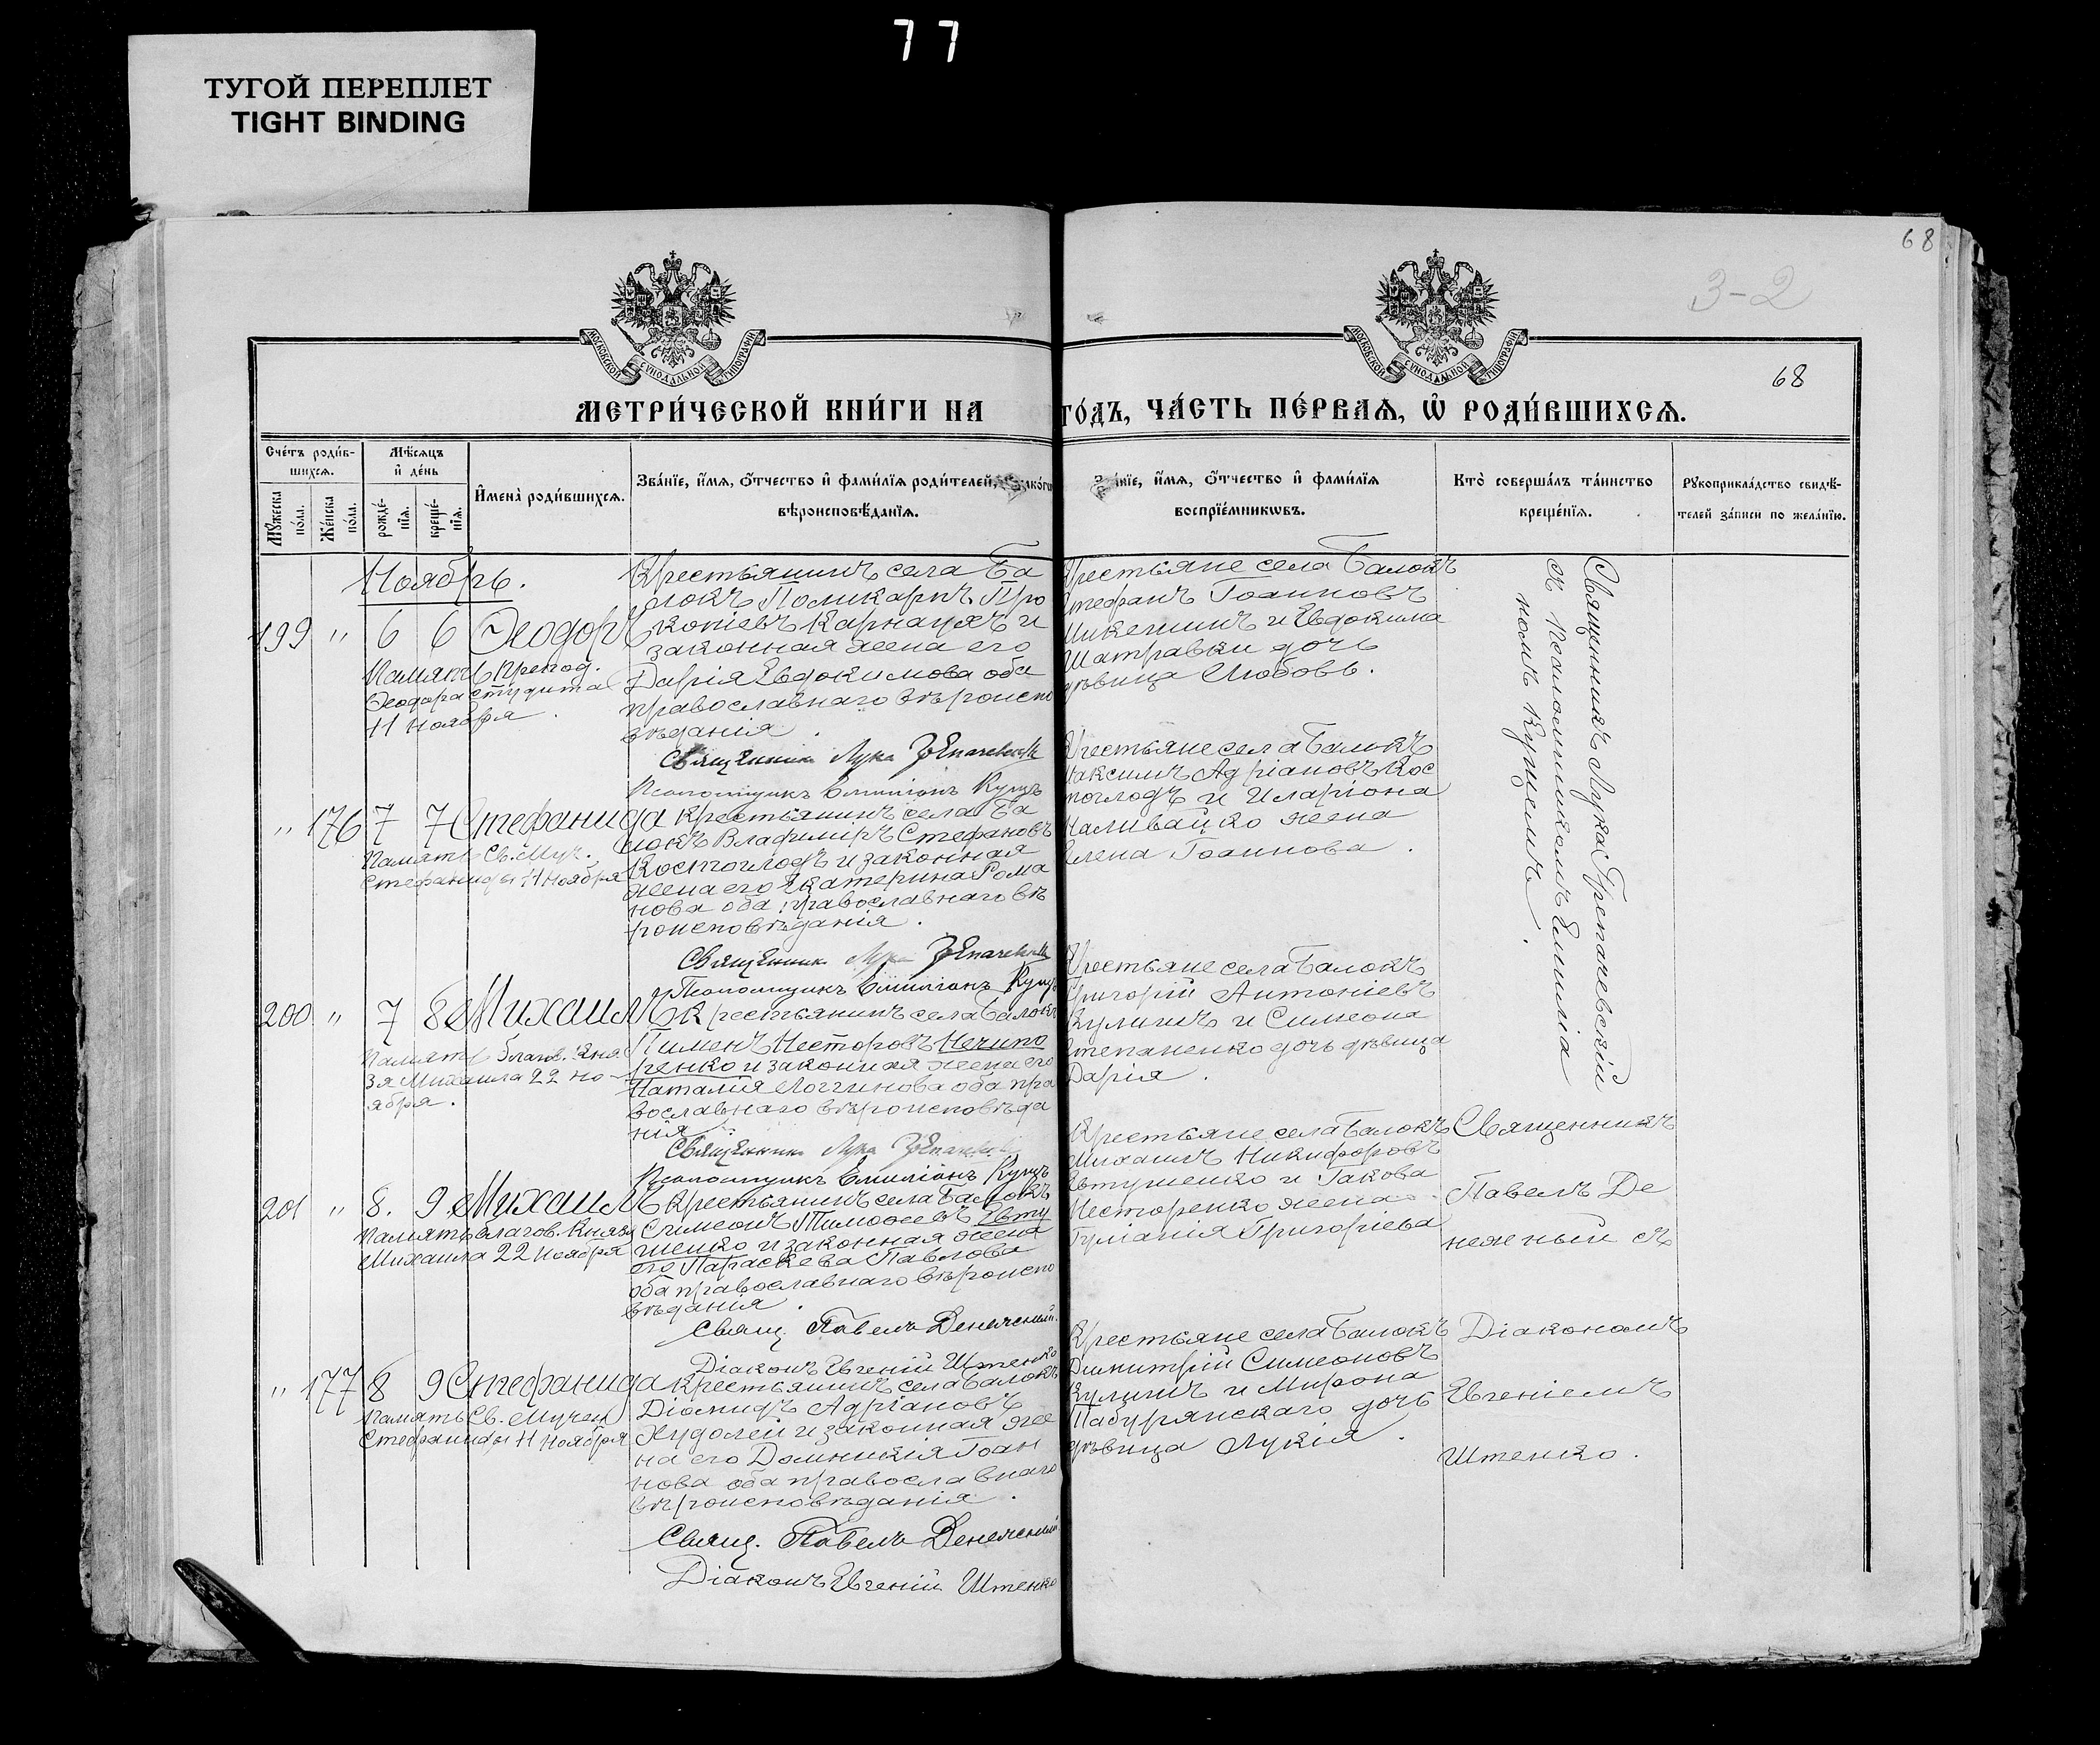 77
ТУГОЙ ПЕРЕПЛЕТ
TIGHT BINDING
68
3-2
МОСКОВСКОЙ СУНОДАЛЬНОЙ ТИПОГРАФIИ
МОСКОВСКОЙ СУНОДАЛЬНОЙ ТИПОГРАФIИ
68
МЕТРИ́ЧЕСКОЙ КНИ́ГИ НА
ГО́ДЪ, ЧА́СТЬ ПЕ́РВАѦ, Ѡ҆ РОДИ́ВШИХСѦ.
Сче́тъ роди́в-
шихсѧ.
Мꙋжеска по́ла.
Же́нска по́ла.
Мѣ́сѧцъ
и҆ де́нь
рожде́-
нїѧ.
креще́-
нїѧ.
И҆мена̀ роди́вшихсѧ.
Зва́нїе, и҆́мѧ, ѻ҆́тчество и҆ фами́лїѧ роди́телей,
вѣроисповѣ́данїѧ.
и҆́мѧ, ѻ҆́тчество и҆ фами́лїѧ
воспрїе́мникѡвъ.
Кто̀ соверша́лъ та́инство
креще́нїѧ.
Рꙋкоприкла́дство свидѣ́-
телей за́писи по жела́нїю.
Ноябрь.
199 " 6 6 Ѳеодоръ
Память препод.
Ѳеодора Студита
11 Ноября.
Крестьянинъ села Ба
локъ Поликарпъ Про
копiевъ Карнаухъ и
законная жена его
Дарiя Евдокимова оба
православнаго вѣроиспо
вѣданiя.
Священникъ Лука
Псаломщикъ Емилiанъ Куцъ
Крестьяне села Балокъ
Стефанъ Iоанновъ
Микешинъ и Евдокима
Шатравки дочь
дѣвица Любовь.
Священникъ Лука Грепачевскiй
съ псаломщикомъ Емилiа
номъ Куцемъ.
" 176 7 7 Стефанида
Память Св. Муч.
Стефаниды 11 Ноября
Крестьянинъ села Ба
локъ Владимiръ Стефановъ
Костоглодъ и законная
жена его Екатерина Рома
нова оба православнаго вѣ
роисповѣданiя.
Священникъ Лука
Псаломщикъ Емилiанъ Куцъ
Крестьяне села Балокъ
Максимъ Адрiановъ Кос
тоглодъ и Иларiона
Наливайко жена
Елена Iоаннова.
200 " 7 8 Михаилъ
Память благов. Кня
зя Михаила 22 Но-
ября.
Крестьянинъ села Балокъ
Пименъ Несторовъ Нечипо
ренко и законная жена его
Наталiя Логгинова оба пра
вославнаго вѣроисповѣда
нiя.
Священникъ Лука
Псаломщикъ Емилiанъ Куцъ
Крестьяне села Балокъ
Григорiй Антонiевъ
Кулишъ и Симеона
Степаненко дочь дѣвица
Дарiя.
201 " 8. 9. Михаилъ
Память благов. Князя
Михаила 22 Ноября
Крестьянинъ села Балокъ
Симеонъ Тимоѳеевъ Евту
шенко и законная жена
его Параскева Павлова
оба православнаго вѣроиспо
вѣданiя.
Свящ. Павелъ Денежный.
Дiаконъ Евгенiй Штенко
Крестьяне села Балокъ
Михаилъ Никифоровъ
Евтушенко и Iакова
Несторенко жена
Iулiанiя Григорiева
Священникъ
Павелъ Де
нежный съ
Дiакономъ
Евгенiемъ
Штенко.
" 177 8 9 Стефанида
Память Св. Мучен
Стефаниды 11 Ноября
Крестьянинъ села Балокъ
Дiомидъ Адрiановъ
Худолей и законная же
на его Домникiя Iоан
нова оба православнаго
вѣроисповѣданiя.
Свящ. Павелъ Денежный
Дiаконъ Евгенiй Штенко
Крестьяне села Балокъ
Димитрiй Симеоновъ
Кулишъ и Мирона
Пабурянскаго дочь
дѣвица Лукiя.